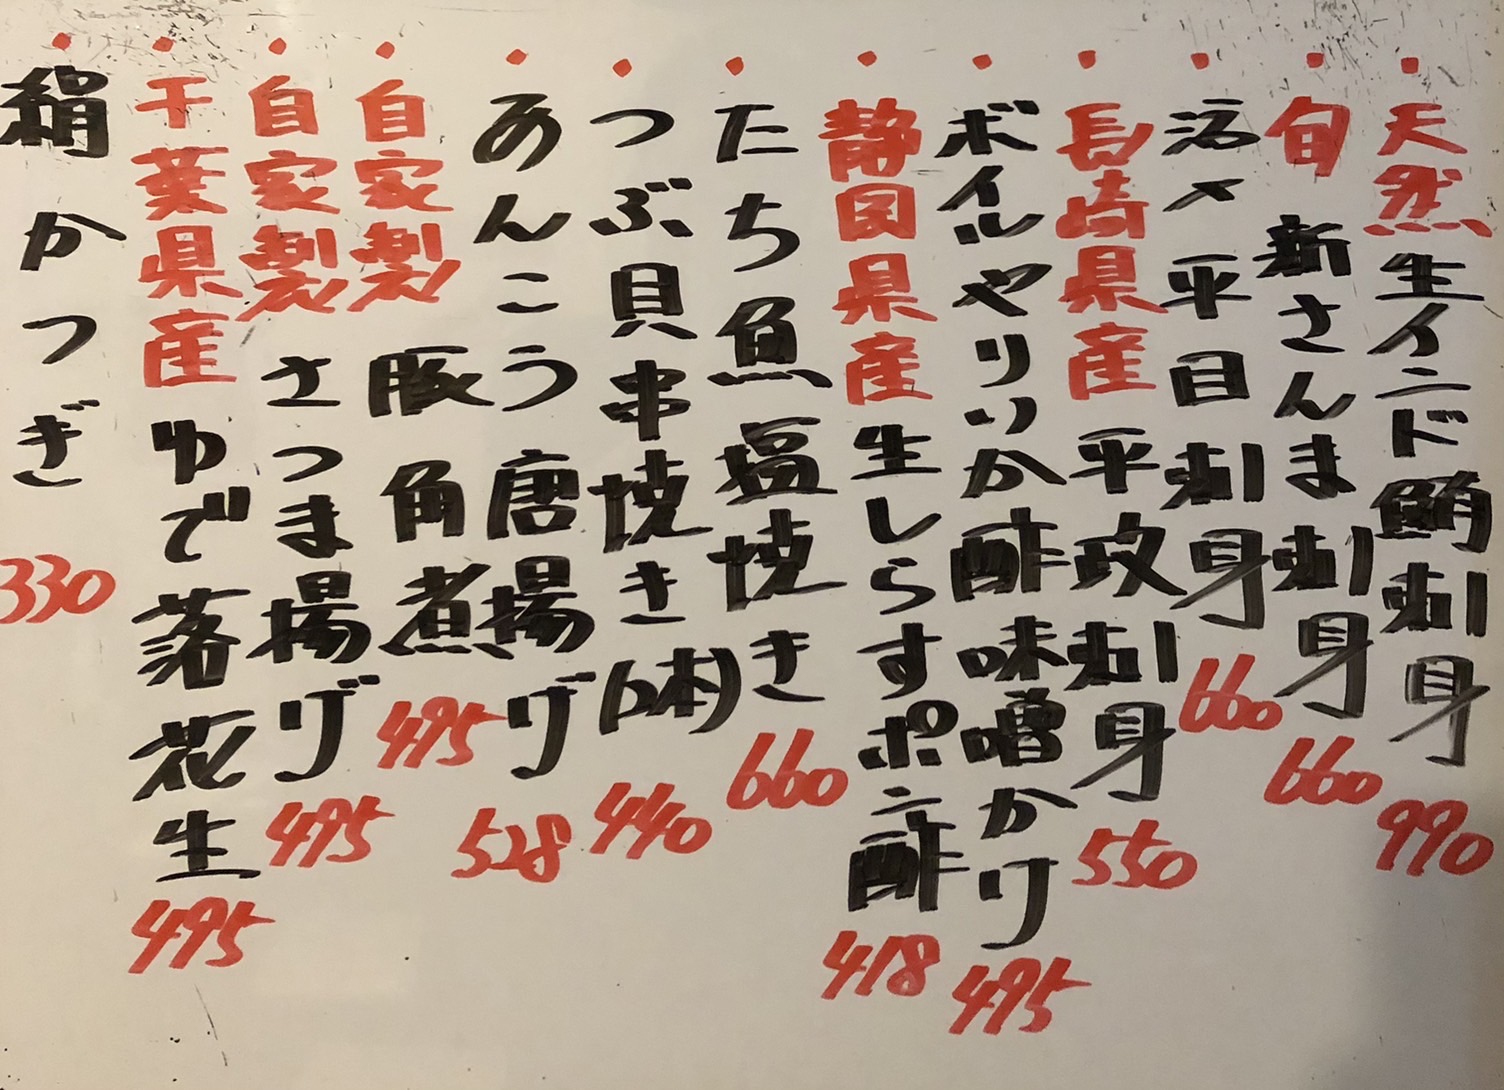 ・天然生インド鮪刺身 990
・旬 新さんま刺身 660
・活〆平目刺身 660
・長崎県産平政刺身 550
・ボイルやりいか酢味噌かけ 495
・静岡県産生しらすポン酢 418
・たち魚塩焼き 660
・つぶ貝串焼き(1本) 440
・あんこう唐揚げ 528
・自家製 豚角煮 495
・自家製 さつま揚げ 495
・千葉県産ゆで落花生 495
・絹かつぎ 330